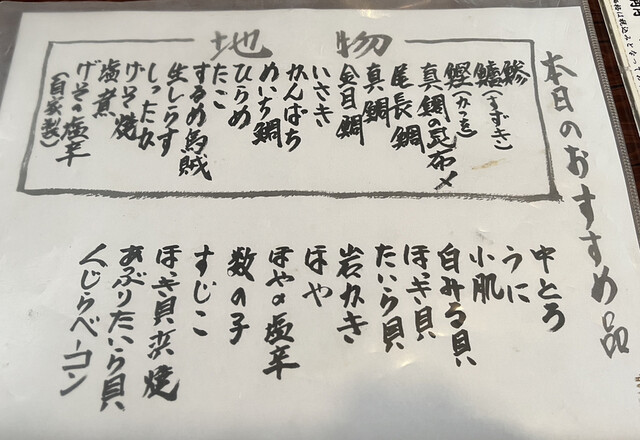 本日のおすすめ品
地物
鯵
鱸(すずき)
鰹(かつを)
真鯛の昆布〆
尾長鯛
真鯛
金目鯛
いさき
かんぱち
めいち鯛
ひらめ
たこ
するめ烏賊
生しらす
しったか
げそ焼
塩煮
げその塩辛
(自家製)
中とろ
うに
小肌
白みる貝
ほっき貝
たいら貝
岩がき
ほや
ほやの塩辛
数の子
すじこ
ほっき貝浜焼
あぶりたいら貝
くじらベーコン